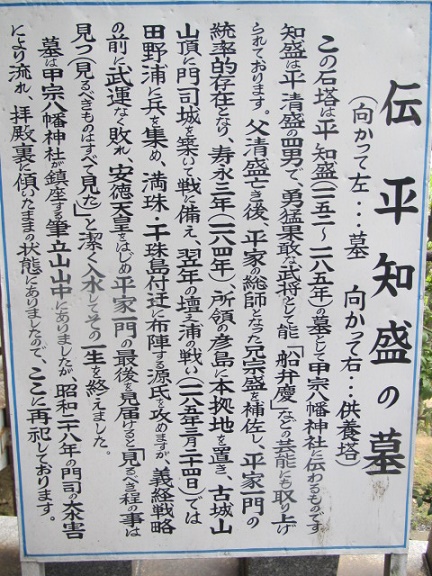 伝 平知盛の墓
(向かって左・・・墓 向かって右・・・供養塔)
この石塔は平知盛(一一五二〜一一八五年)の墓として甲宗八幡神社に伝わるものです
知盛は平清盛の四男で、勇猛果敢な武将として能「船弁慶」などの芸能にも取り上げ
られております。父清盛亡き後、平家の総師となった兄宗盛を補佐し、平家一門の
統率的存在となり、寿永三年(一一八四年)、所領の彦島に本拠地を置き、古城山
山頂に門司城を築いて戦に備え、翌年の壇ノ浦の戦い(一一八五年三月二十四日)では
田野浦に兵を集め、満珠・干珠島付近に布陣する源氏を攻めますが、義経戦略
の前に武運なく敗れ、安徳天皇をはじめ平家一門の最後を見届けると「見るべき程の事は
見つ(見るべきものはすべて見た)」と潔く入水してその一生を終えました。
墓は甲宗八幡神社が鎮座する筆立山山中にありましたが、昭和二十八年の門司の大水害
により流れ、拝殿裏に傾いたままの状態にありましたので、ここに再祀しております。